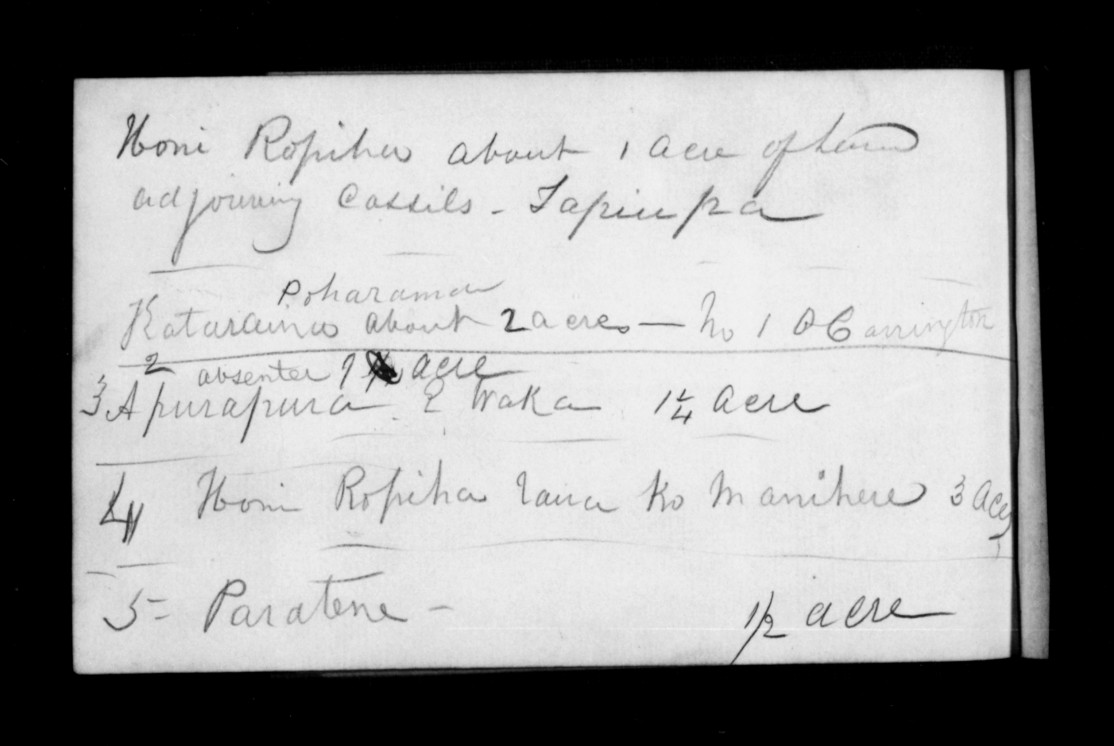 Honi Ropiha about 1 acre of land
adjoining Cassils - Tapuipa
Poharama
Kataraina about 2 acres — No 1 O Carrington
2 absenter 1 acre
3 Apurapura E Waka 1 1/4 acre
4 Honi Ropiha raua Ko Manihere 3 ac
5 = Paratene - 1/2 acre